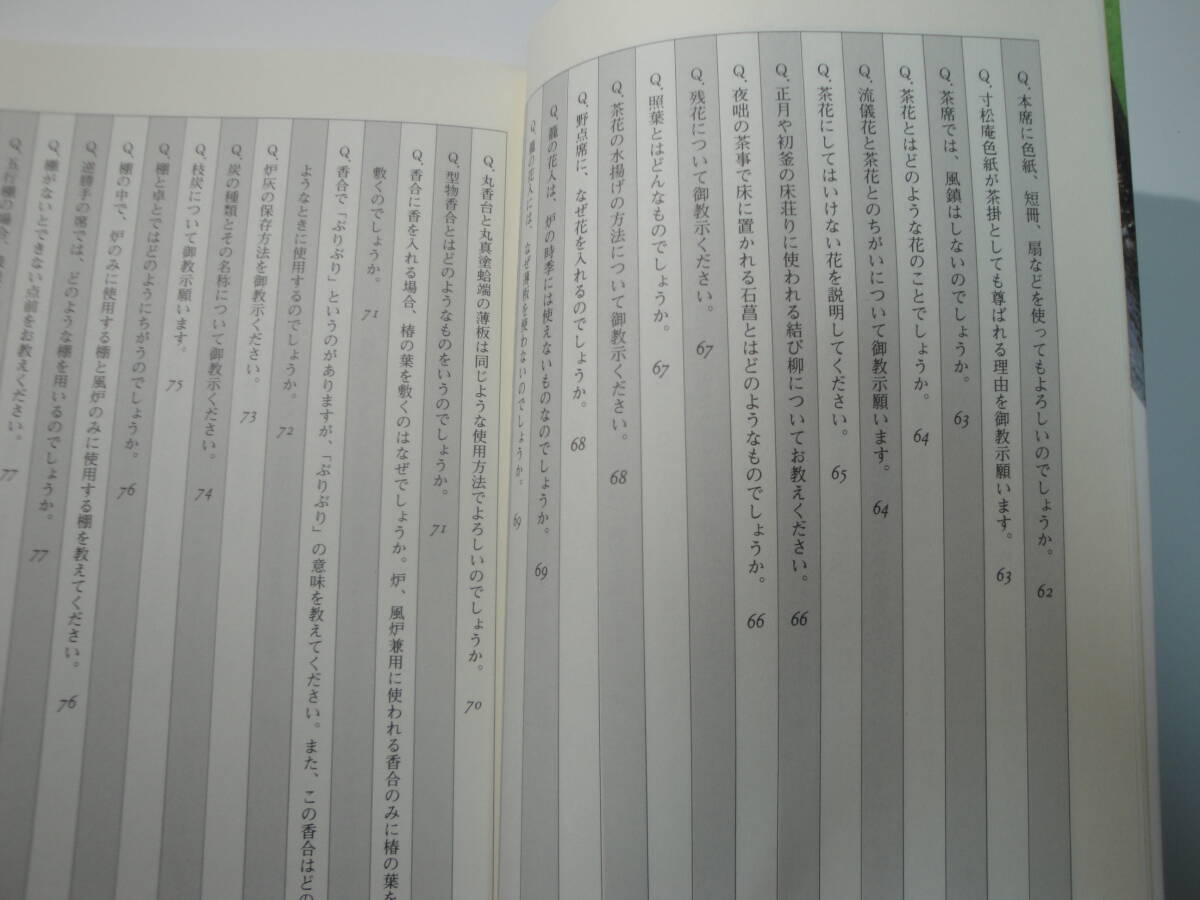 Q、本席に色紙、短冊、扇などを使ってもよろしいのでしょうか。 62
Q、寸松庵色紙が茶掛としても尊ばれる理由を御教示願います。 63
Q、茶席では、風鎮はしないのでしょうか。 63
Q、茶花とはどのような花のことでしょうか。 64
Q、流儀花と茶花とのちがいについて御教示願います。 64
Q、茶花にしてはいけない花を説明してください。 65
Q、正月や初釜の床荘りに使われる結び柳についてお教えください。 66
Q、夜咄の茶事で床に置かれる石菖とはどのようなものでしょうか。 66
Q、残花について御教示ください。 67
Q、照葉とはどんなものでしょうか。 67
Q、茶花の水揚げの方法について御教示ください。 68
Q、野点席に、なぜ花を入れるのでしょうか。 68
Q、籠の花入は、炉の時季には使えないものなのでしょうか。 69
Q、籠の花入には、なぜ薄板を使わないのでしょうか。 69
Q、丸香台と丸真塗蛤端の薄板は同じような使用方法でよろしいのでしょうか。 70
Q、型物香合とはどのようなものをいうのでしょうか。 71
Q、香合に香を入れる場合、椿の葉を敷くのはなぜでしょうか。炉、風炉兼用に使われる香合のみに椿の葉を
敷くのでしょうか。 71
Q、香合で「ぶりぶり」というのがありますが、「ぶりぶり」の意味を教えてください。また、この香合はどの
ようなときに使用するのでしょうか。 72
Q、炉灰の保存方法を御教示ください。 73
Q、炭の種類とその名称について御教示ください。 74
Q、枝炭について御教示願います。 75
Q、棚と卓とではどのようにちがうのでしょうか。 76
Q、棚の中で、炉のみに使用する棚と風炉のみに使用する棚を教えてください。 76
Q、逆勝手の席では、どのような棚を用いるのでしょうか。 77
Q、棚がないとできない点前をお教えください。 77
Q、五行棚の場合、